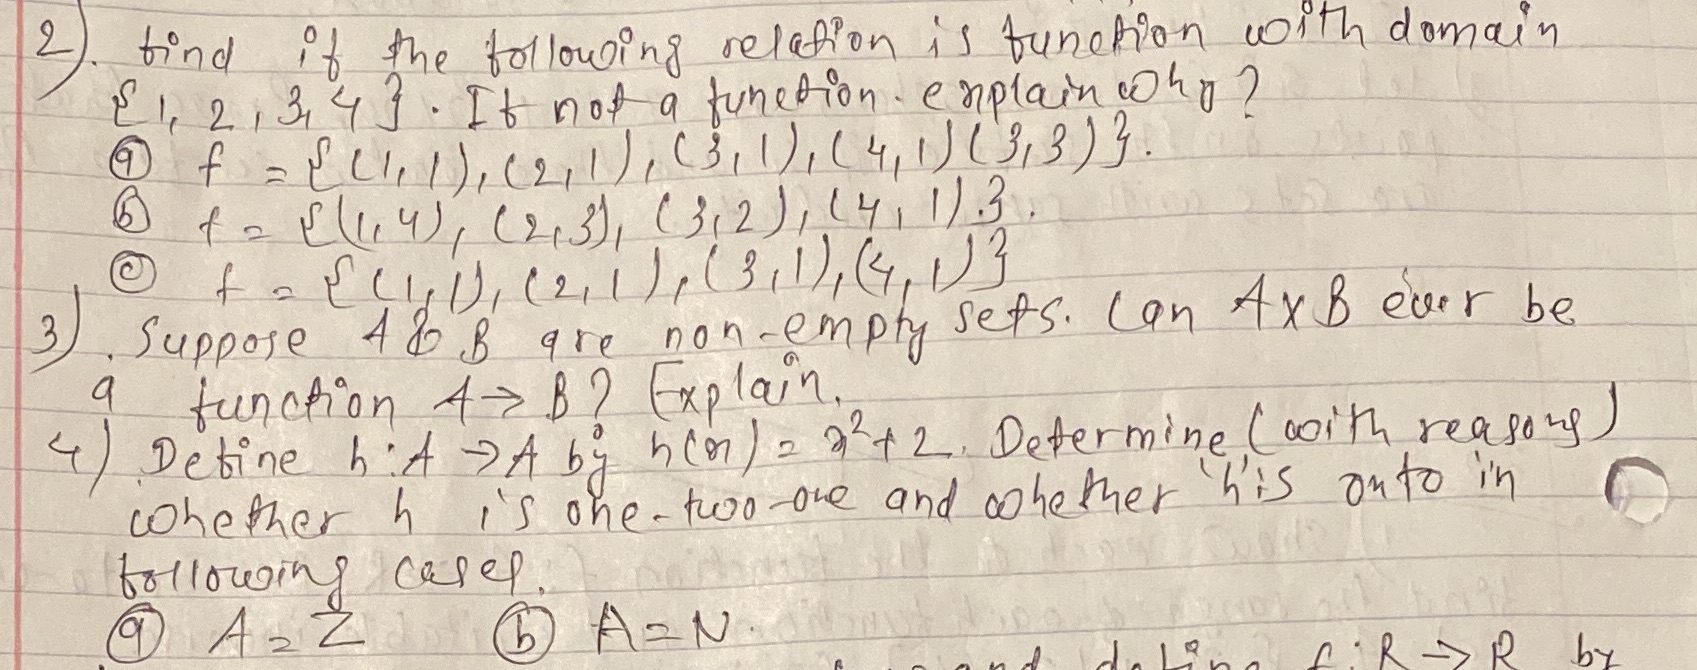 2). find if the following relation is function with domain
{1, 2, 3, 4}. If not a function. explain why?
ⓐ f = {(1,1), (2,1), (3,1), (4,1) (3,3)}.
ⓑ f = {(1,4), (2,3), (3,2), (4,1).}.
ⓒ f = {(1,1), (2,1), (3,1), (4,1)}
3). Suppose A & B are non-empty sets. Can A×B ever be
a function A→B? Explain.
4) Define h:A→A by h(x) = x²+2. Determine (with reasons)
whether h is one-two-one and whether 'h' is onto in
following cases.
ⓐ A=Z ⓑ A=N.
and define f:R→R by